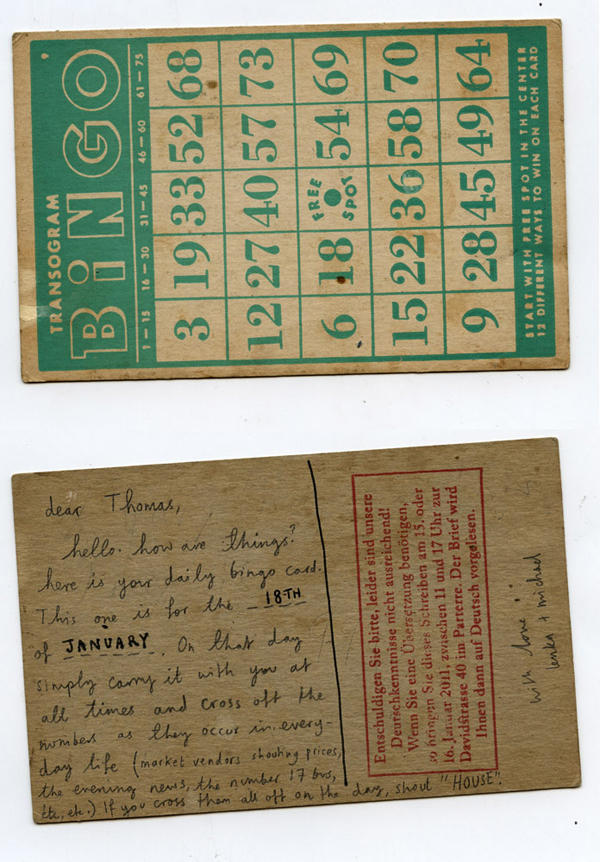 TRANSOGRAM
BiNGO
1–15 16–30 31–45 46–60 61–75
3 19 33 52 68
12 27 40 57 73
6 18 FREE SPOT 54 69
15 22 36 58 70
9 28 45 49 64
START WITH FREE SPOT IN THE CENTER
12 DIFFERENT WAYS TO WIN ON EACH CARD
dear Thomas,
hello. how are things?
here is your daily bingo card.
This one is for the 18TH
of JANUARY. On that day
simply carry it with you at
all times and cross off the
numbers as they occur in every-
day life (market vendors shouting prices,
the evening news, the number 17 bus,
etc, etc.) If you cross them all off on the day, shout "HOUSE".
Entschuldigen Sie bitte, leider sind unsere
Deutschkenntnisse nicht ausreichend!
Wenn Sie eine Übersetzung benötigen,
so bringen Sie dieses Schreiben am 15. oder
16. Januar 2011, zwischen 11 und 17 Uhr zur
Davidstrasse 40 im Parterre. Der Brief wird
Ihnen dann auf Deutsch vorgelesen.
with love
lenka + michael